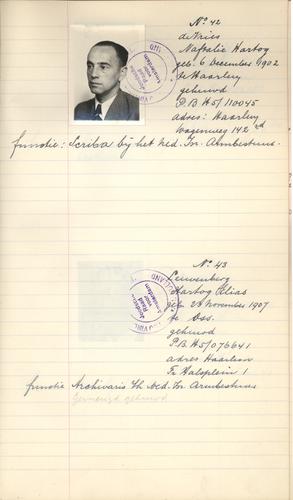 No 42
de Vries
Naftalie Hartog
geb. 6 December 1902
te Haarlem
gehuwd
P.B. H5/ 110045
adres: Haarlem
Wagenweg 142 rd
functie: Scriba bij het Ned. Isr. Armbestuur.
Joodsche
Raad
voor
Amsterdam
No 43
Leuvenberg
Hartog Elias
geb 24 November 1907
te Oss.
gehuwd
P.B. H5/076641
adres Haarlem
Fr Halsplein 1
Joodsche
Raad
voor
Amsterdam
functie Archivaris Ned. Isr Armbestuur
Gemengd gehuwd